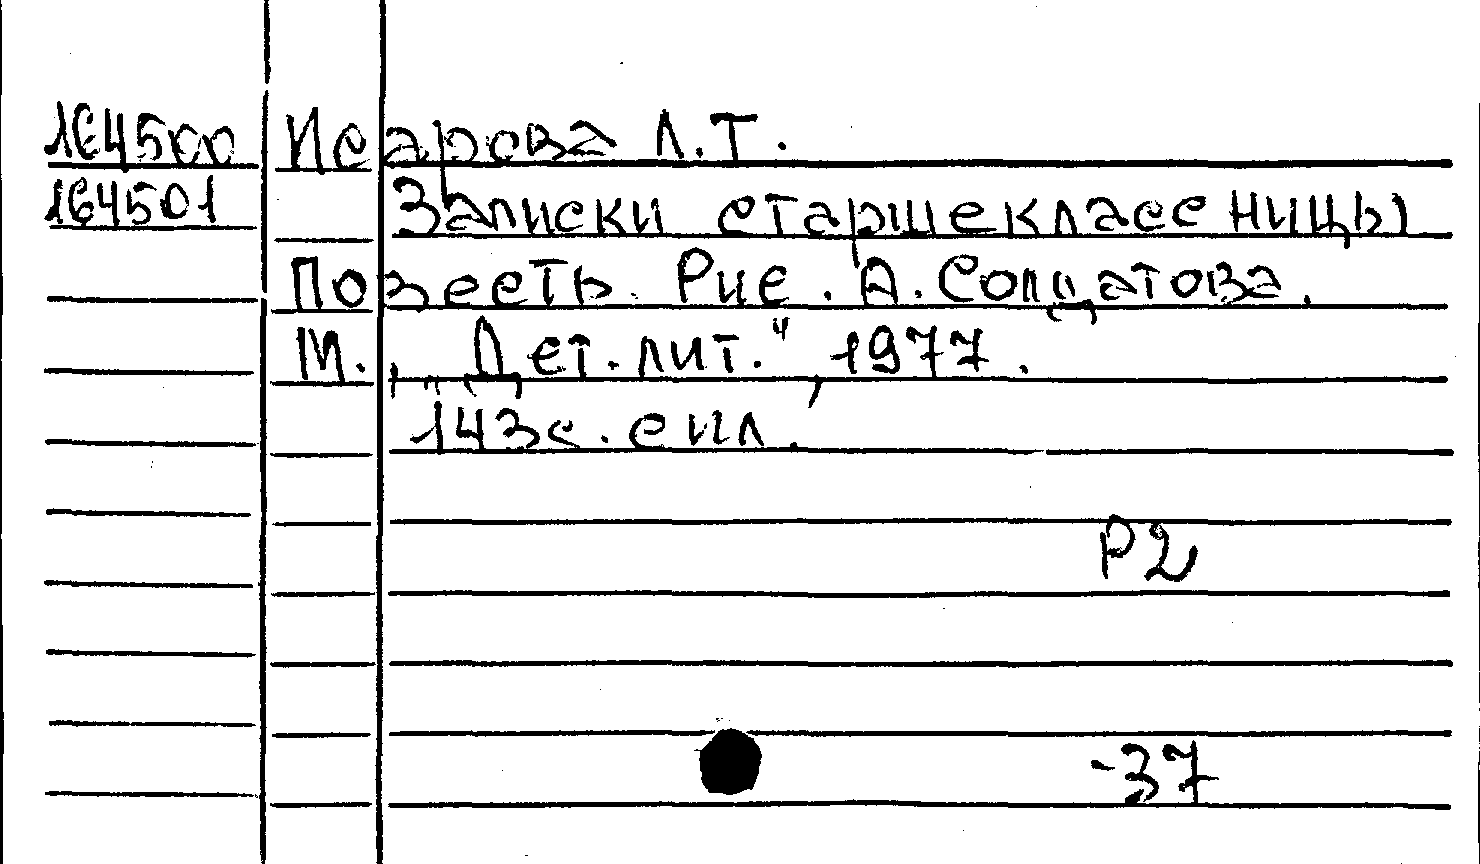 164500 Исарова Л.Т.
164501 Записки старшеклассницы
Повесть. Рис. А. Солдатова.
М., „Дет. лит.“, 1977.
143с. с ил.
Р2
-37